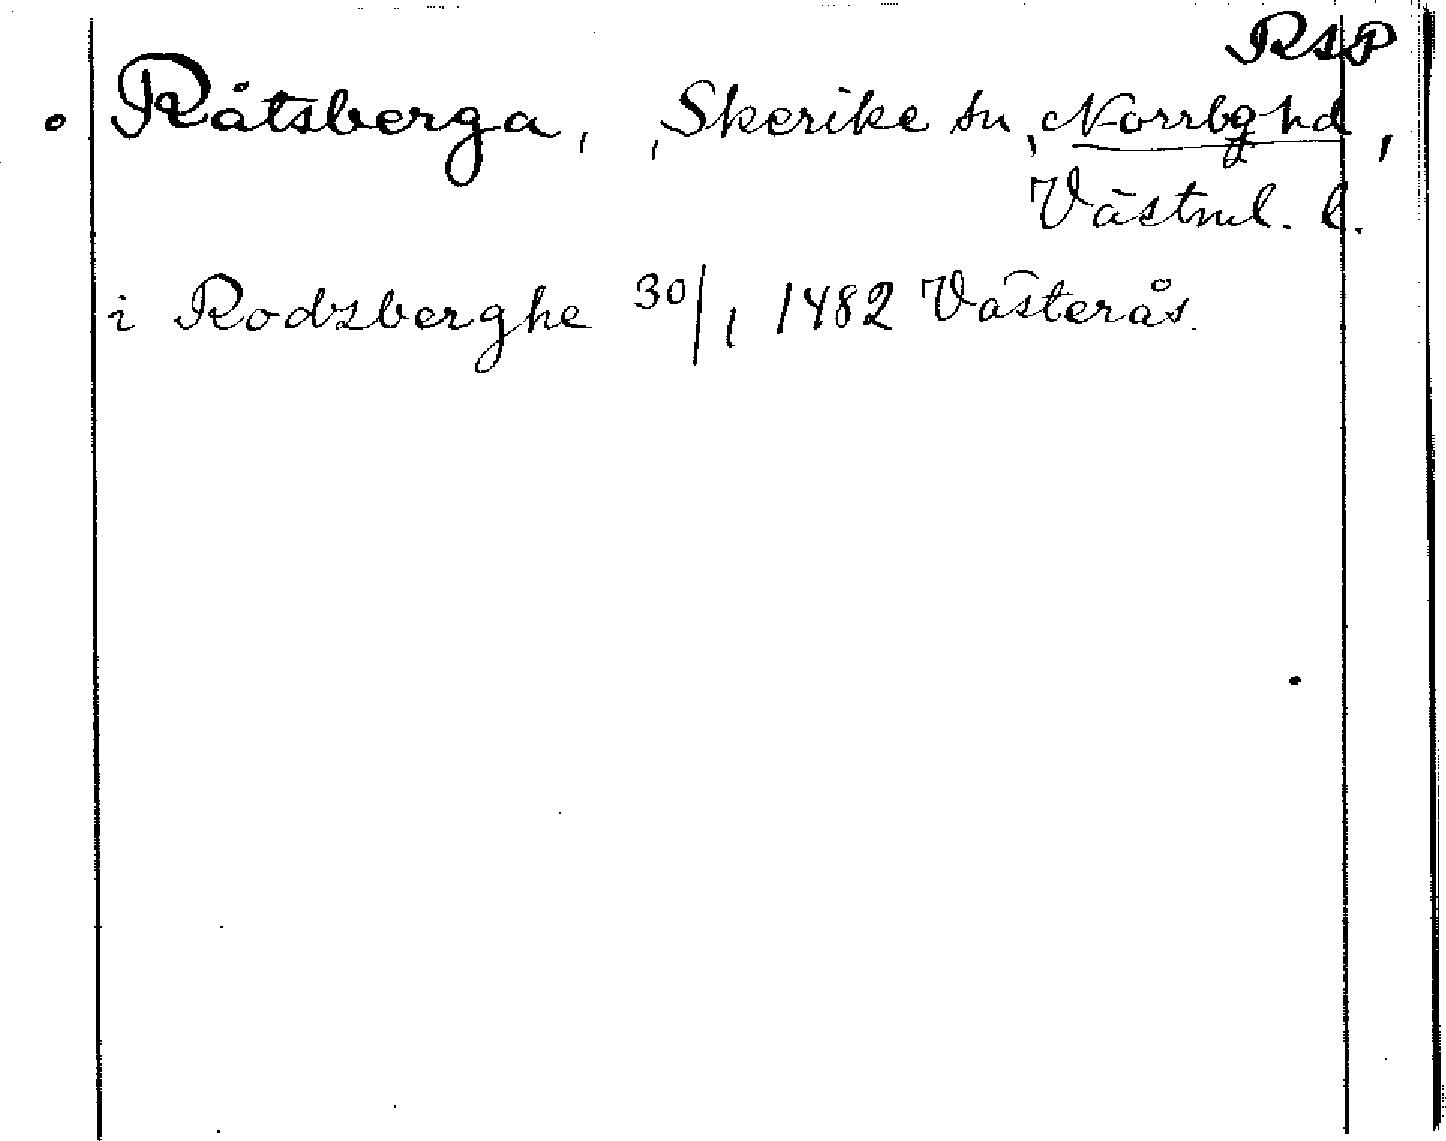 RSP
Råtsberga, Skerike sn, Norrbghd,
Västml. l.
i Rodzberghe 30/1 1482 Västerås.